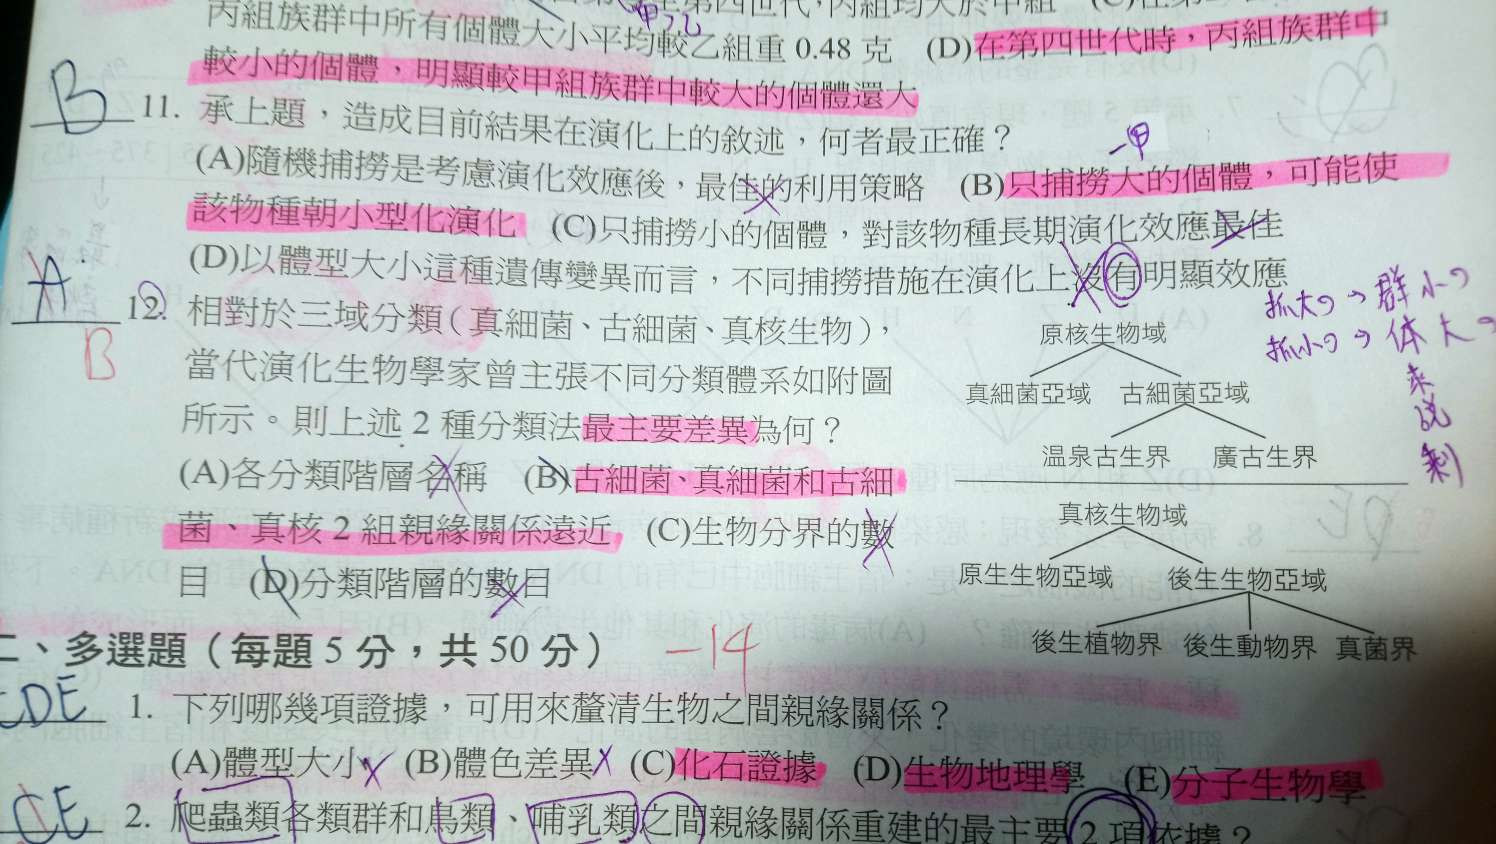 丙組族群中所有個體大小平均較乙組重 0.48 克 (D)在第四世代時，丙組族群中
較小的個體，明顯較甲組族群中較大的個體還大
B 11. 承上題，造成目前結果在演化上的敘述，何者最正確？
一甲
(A)隨機捕撈是考慮演化效應後，最佳的利用策略 (B)只捕撈大的個體，可能使
該物種朝小型化演化 (C)只捕撈小的個體，對該物種長期演化效應最佳
(D)以體型大小這種遺傳變異而言，不同捕撈措施在演化上沒有明顯效應
A 12. 相對於三域分類（真細菌、古細菌、真核生物），
B
當代演化生物學家曾主張不同分類體系如附圖
所示。則上述 2 種分類法最主要差異為何？
(A)各分類階層名稱 (B)古細菌、真細菌和古細
菌、真核 2 組親緣關係遠近 (C)生物分界的數
目 (D)分類階層的數目
原核生物域
真細菌亞域 古細菌亞域
溫泉古生界 廣古生界
真核生物域
原生生物亞域 後生生物亞域
後生植物界 後生動物界 真菌界
抓大 → 群小
抓小 → 体大
來
說
剩
二、多選題（每題 5 分，共 50 分） -14
CDE 1. 下列哪幾項證據，可用來釐清生物之間親緣關係？
(A)體型大小 (B)體色差異 (C)化石證據 (D)生物地理學 (E)分子生物學
CE 2. 爬蟲類各類群和鳥類、哺乳類之間親緣關係重建的最主要 2 項依據？